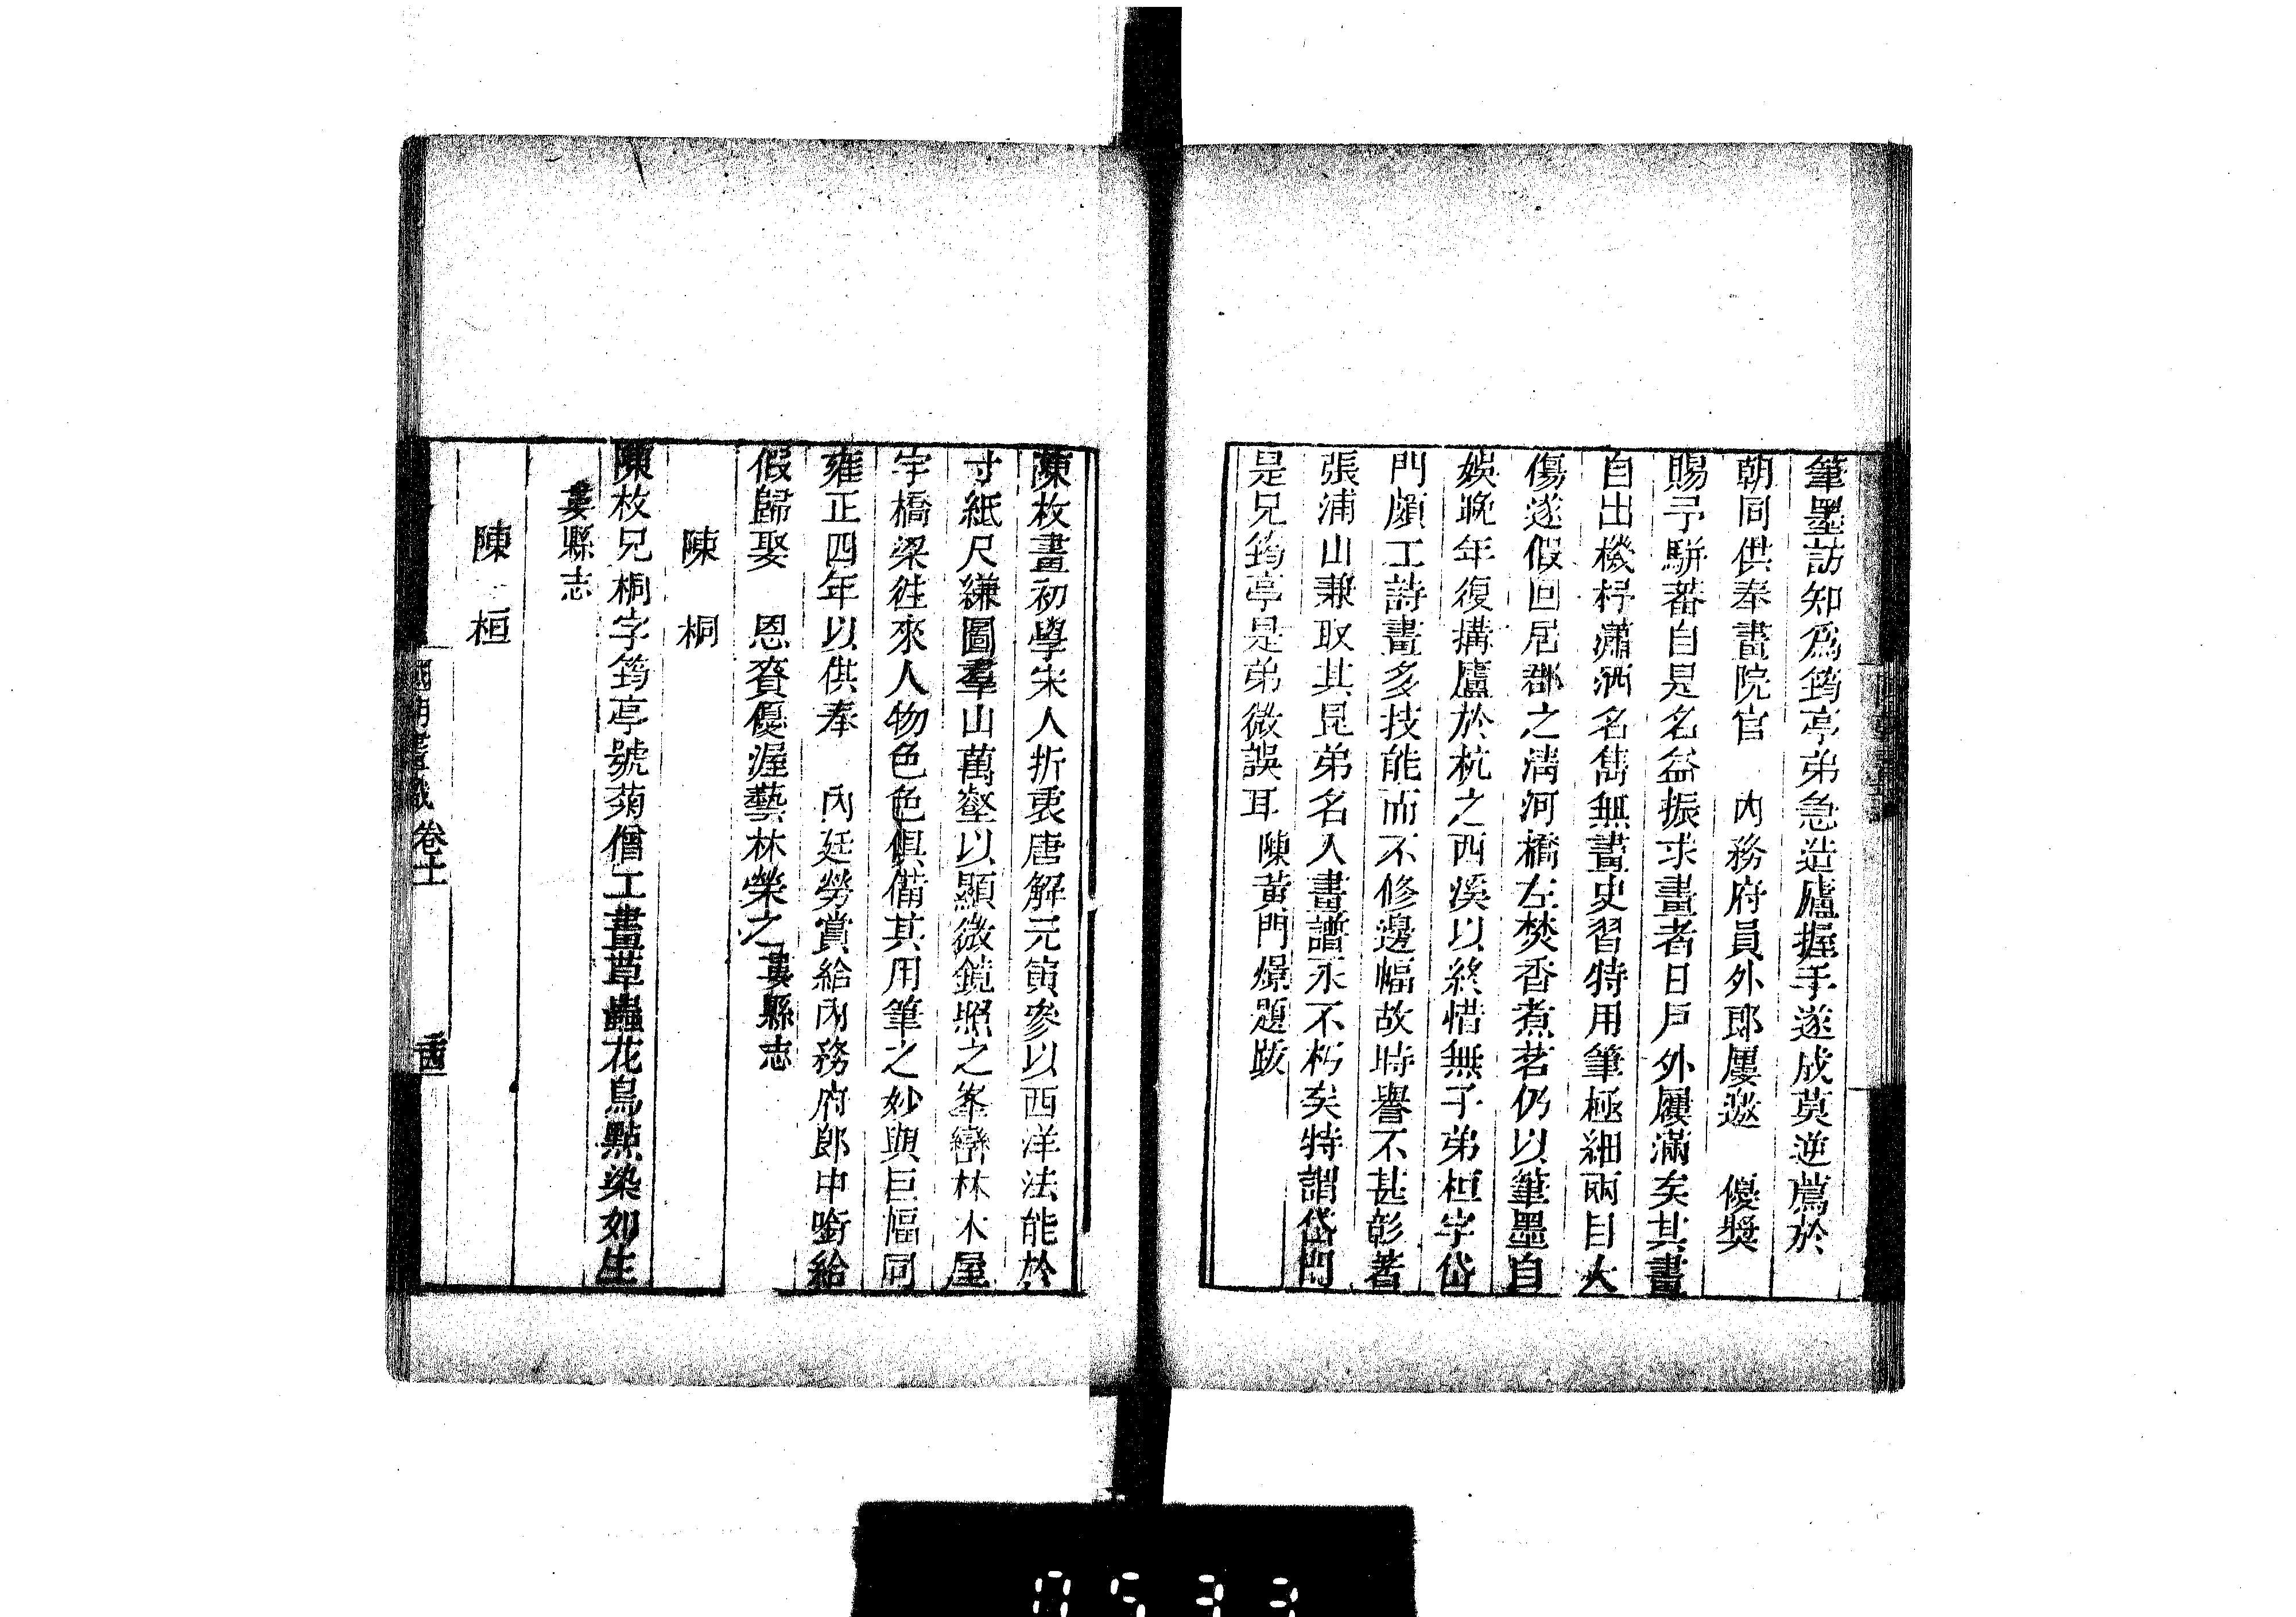 筆墨訪知爲筠亭弟急造廬握手遂成莫逆薦於
朝同供奉畫院官　內務府員外郎屢邀　優奬
賜予駢蕃自是名益振求畫者日戶外屨滿矣其畫
自出機杼瀟洒名雋無畫史習特用筆極細兩目大
傷遂假回居郡之淸河橋左焚香煮茗仍以筆墨自
娛晚年復搆廬於杭之西溪以終惜無子弟桓字岱
門頗工詩畫多技能而不修邊幅故時譽不甚彰著
張浦山兼取其昆弟名入畫譜永不朽矣特謂岱門
是兄筠亭是弟微誤耳陳黃門燝題跋
陳枚畫初學宋人折衷唐解元寅參以西洋法能於
寸紙尺縑圖羣山萬壑以顯微鏡照之峯巒林木屋
宇橋梁徃來人物色色俱備其用筆之妙與巨幅同
雍正四年以供奉　內廷勞賞給內務府郎中銜給
假歸娶　恩賚優渥藝林榮之婁縣志
陳　桐
陳枚兄桐字筠亭號菊僧工畫草蟲花鳥點染如生
婁縣志
陳　桓
國朝畫識　卷十一　十四
0533